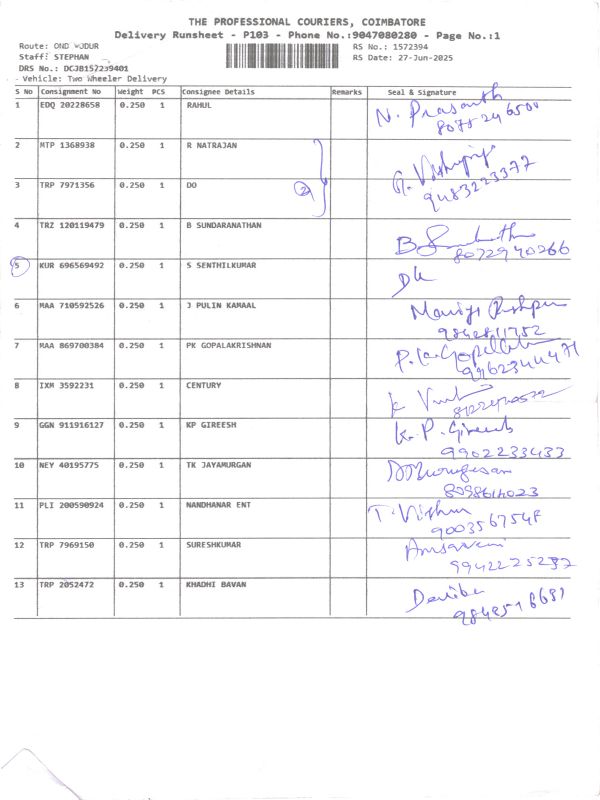 THE PROFESSIONAL COURIERS, COIMBATORE
Delivery Runsheet - P103 - Phone No.:9047080280 - Page No.:1
Route: OND WUDUR RS No.: 1572394
Staff: STEPHAN RS Date: 27-Jun-2025
DRS No.: DCJB157239401
Vehicle: Two Wheeler Delivery
S No Consignment No Weight PCS Consignee Details Remarks Seal & Signature
1 EDQ 20228658 0.250 1 RAHUL N. Prasanth
8075246500
2 MTP 1368938 0.250 1 R NATRAJAN
3 TRP 7971356 0.250 1 DO 2
9483223377
4 TRZ 120119479 0.250 1 B SUNDARANATHAN
8072940266
5 KUR 696569492 0.250 1 S SENTHILKUMAR
6 MAA 710592526 0.250 1 J PULIN KAMAAL
7 MAA 869700384 0.250 1 PK GOPALAKRISHNAN
9962344471
8 IXM 3592231 0.250 1 CENTURY
9 GGN 911916127 0.250 1 KP GIREESH K. P. Gireesh
9902233433
10 NEY 40195775 0.250 1 TK JAYAMURGAN
11 PLI 200590924 0.250 1 NANDHANAR ENT T. Vishnu
12 TRP 7969150 0.250 1 SURESHKUMAR
9942225237
13 TRP 2052472 0.250 1 KHADHI BAVAN